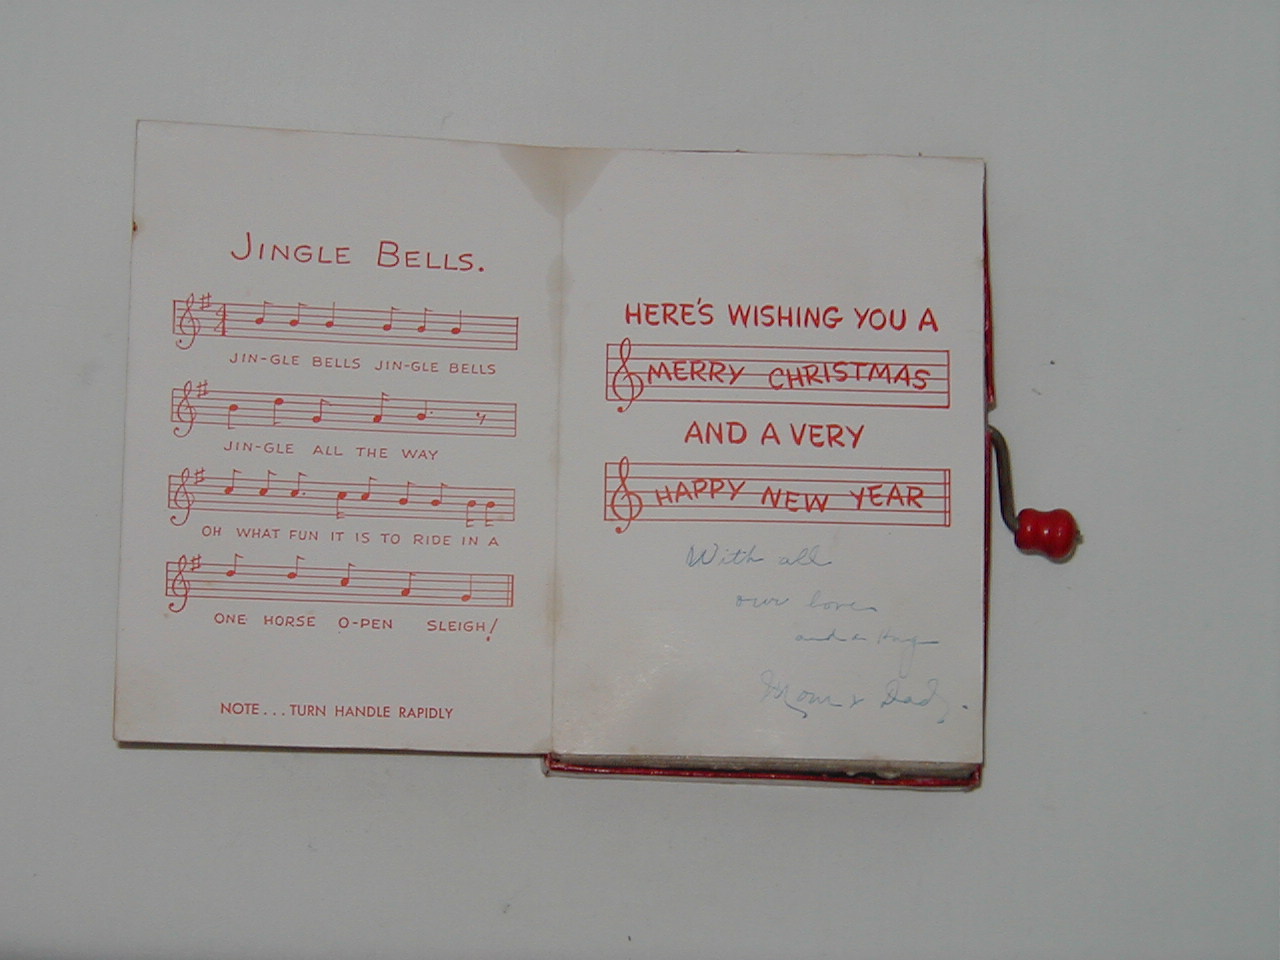 JINGLE BELLS.
JIN-GLE BELLS JIN-GLE BELLS
JIN-GLE ALL THE WAY
OH WHAT FUN IT IS TO RIDE IN A
ONE HORSE O-PEN SLEIGH!
NOTE...TURN HANDLE RAPIDLY
HERE'S WISHING YOU A
MERRY CHRISTMAS
AND A VERY
HAPPY NEW YEAR
With all
our love
and a Hug
Mom & Dad.